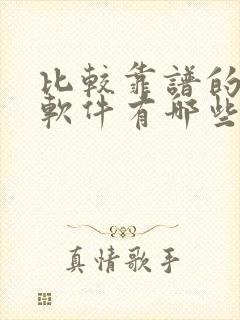 比較靠譜的
軟件有哪些
真情歌手